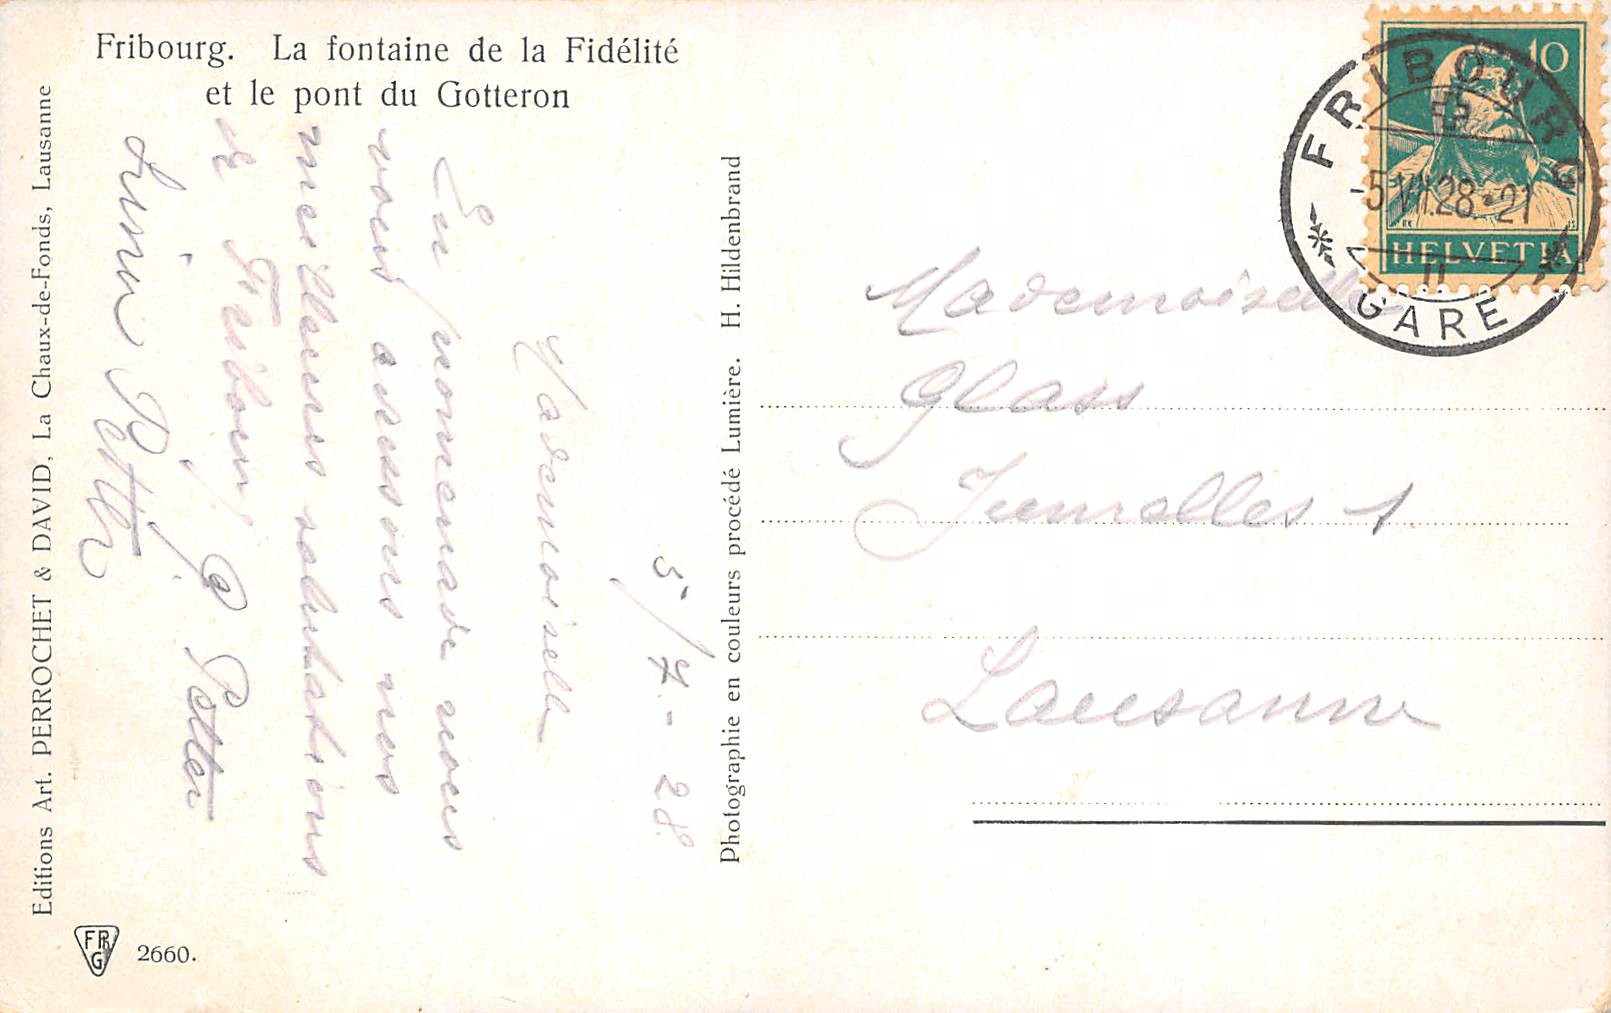 Fribourg. La fontaine de la Fidélité
et le pont du Gotteron
Editions Art. PERROCHET & DAVID, La Chaux-de-Fonds, Lausanne
Photographie en couleurs procédé Lumière. H. Hildenbrand
5/7-28.
Mademoiselle
En promenade nous
vous adressons nos
meilleures salutations
de Fribourg
P. Petter
Petter
FRG
2660.
10
HELVETIA
FRIBOURG
-5.VII.28-21
II
GARE
Mademoiselle
Glass
Jumelles 1
Lausanne